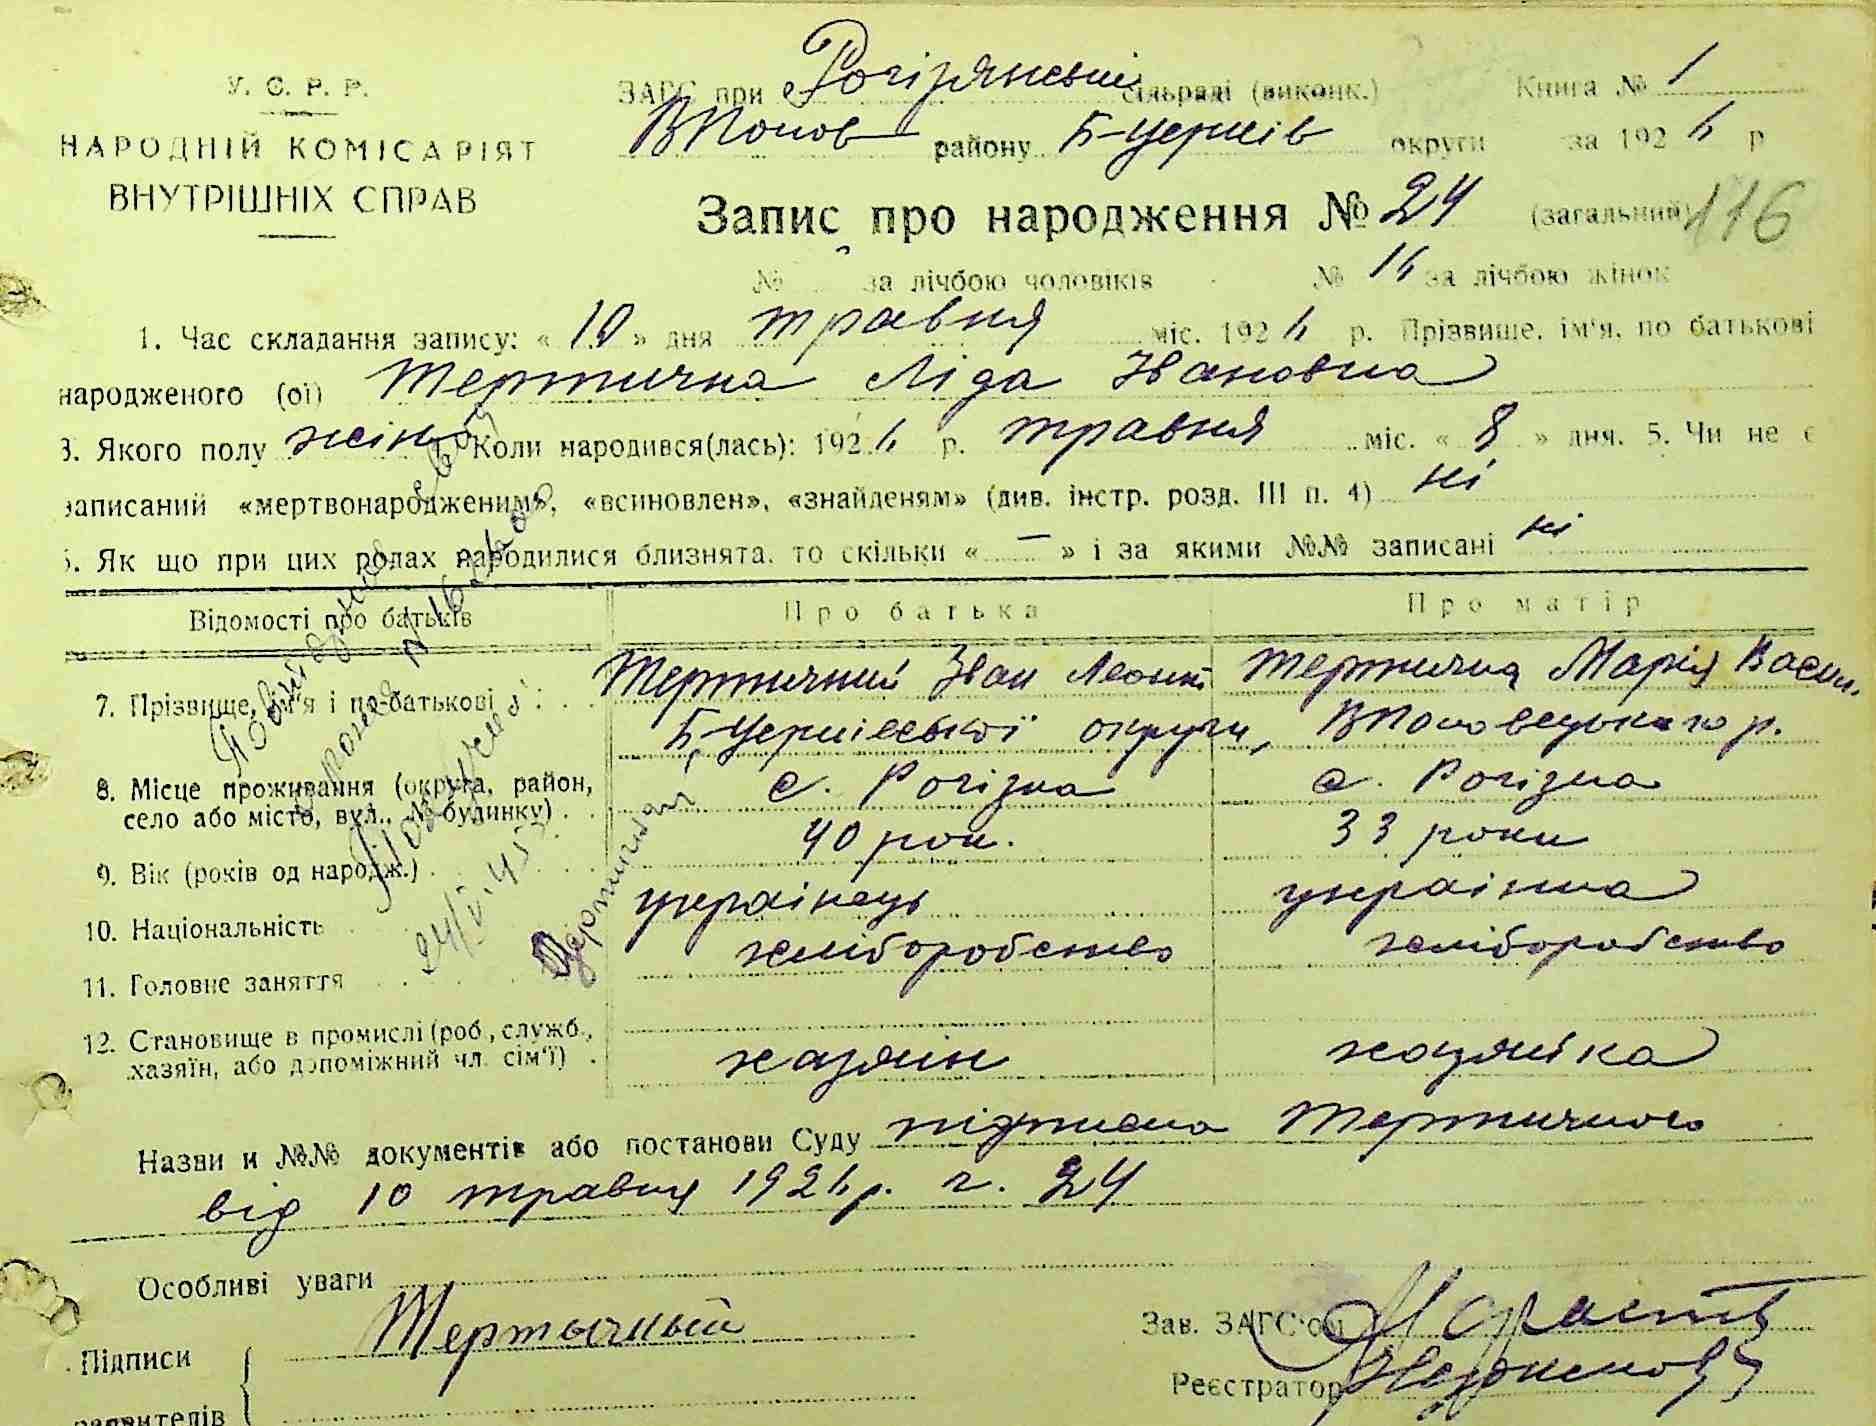 У. С. Р. Р.
НАРОДНІЙ КОМІСАРІЯТ
ВНУТРІШНІХ СПРАВ
ЗАГС при Рогізянській сільраді (виконк.) Книга № 1
ВПолов району Б-Церків округи за 192 р
Запис про народження № 24 (загальний) 116
№ за лічбою чоловіків № за лічбою жінок
1. Час складання запису: « 10 » дня травня міс. 192 р. Прізвище, ім'я, по батькові
народженого (ої) Тертична Ліда Івановна
3. Якого полу жіноч Коли народився(лась): 192 р. травня міс. « 8 » дня. 5. Чи не є
записаний «мертвонародженим», «всиновлен», «знайденям» (див. інстр. розд. III п. 4) ні
Як що при цих родах народилися близнята, то скільки « — » і за якими №№ записані ні
Відомості про батьків Про батька Про матір
7. Прізвище, ім'я і по-батькові Тертичний Іван Леонт Тертична Марія Васил.
Б,Церківської округи,
8. Місце проживання (округа, район, с. Рогізна с. Рогізна
село або місто, вул., № будинку)
9. Вік (років од народж.) 40 рок. 33 роки
10. Національність українець українка
11. Головне заняття хліборобство хліборобство
12. Становище в промислі (роб., служб., хазяїн, або допоміжний чл. сім'ї) хазяїн хазяйка
Назви и №№ документів або постанови Суду підписка Тертичного
від 10 травня
24
Особливі уваги
Підписи Тертычный
заявителів
Зав. ЗАГС'ом
Реєстратор